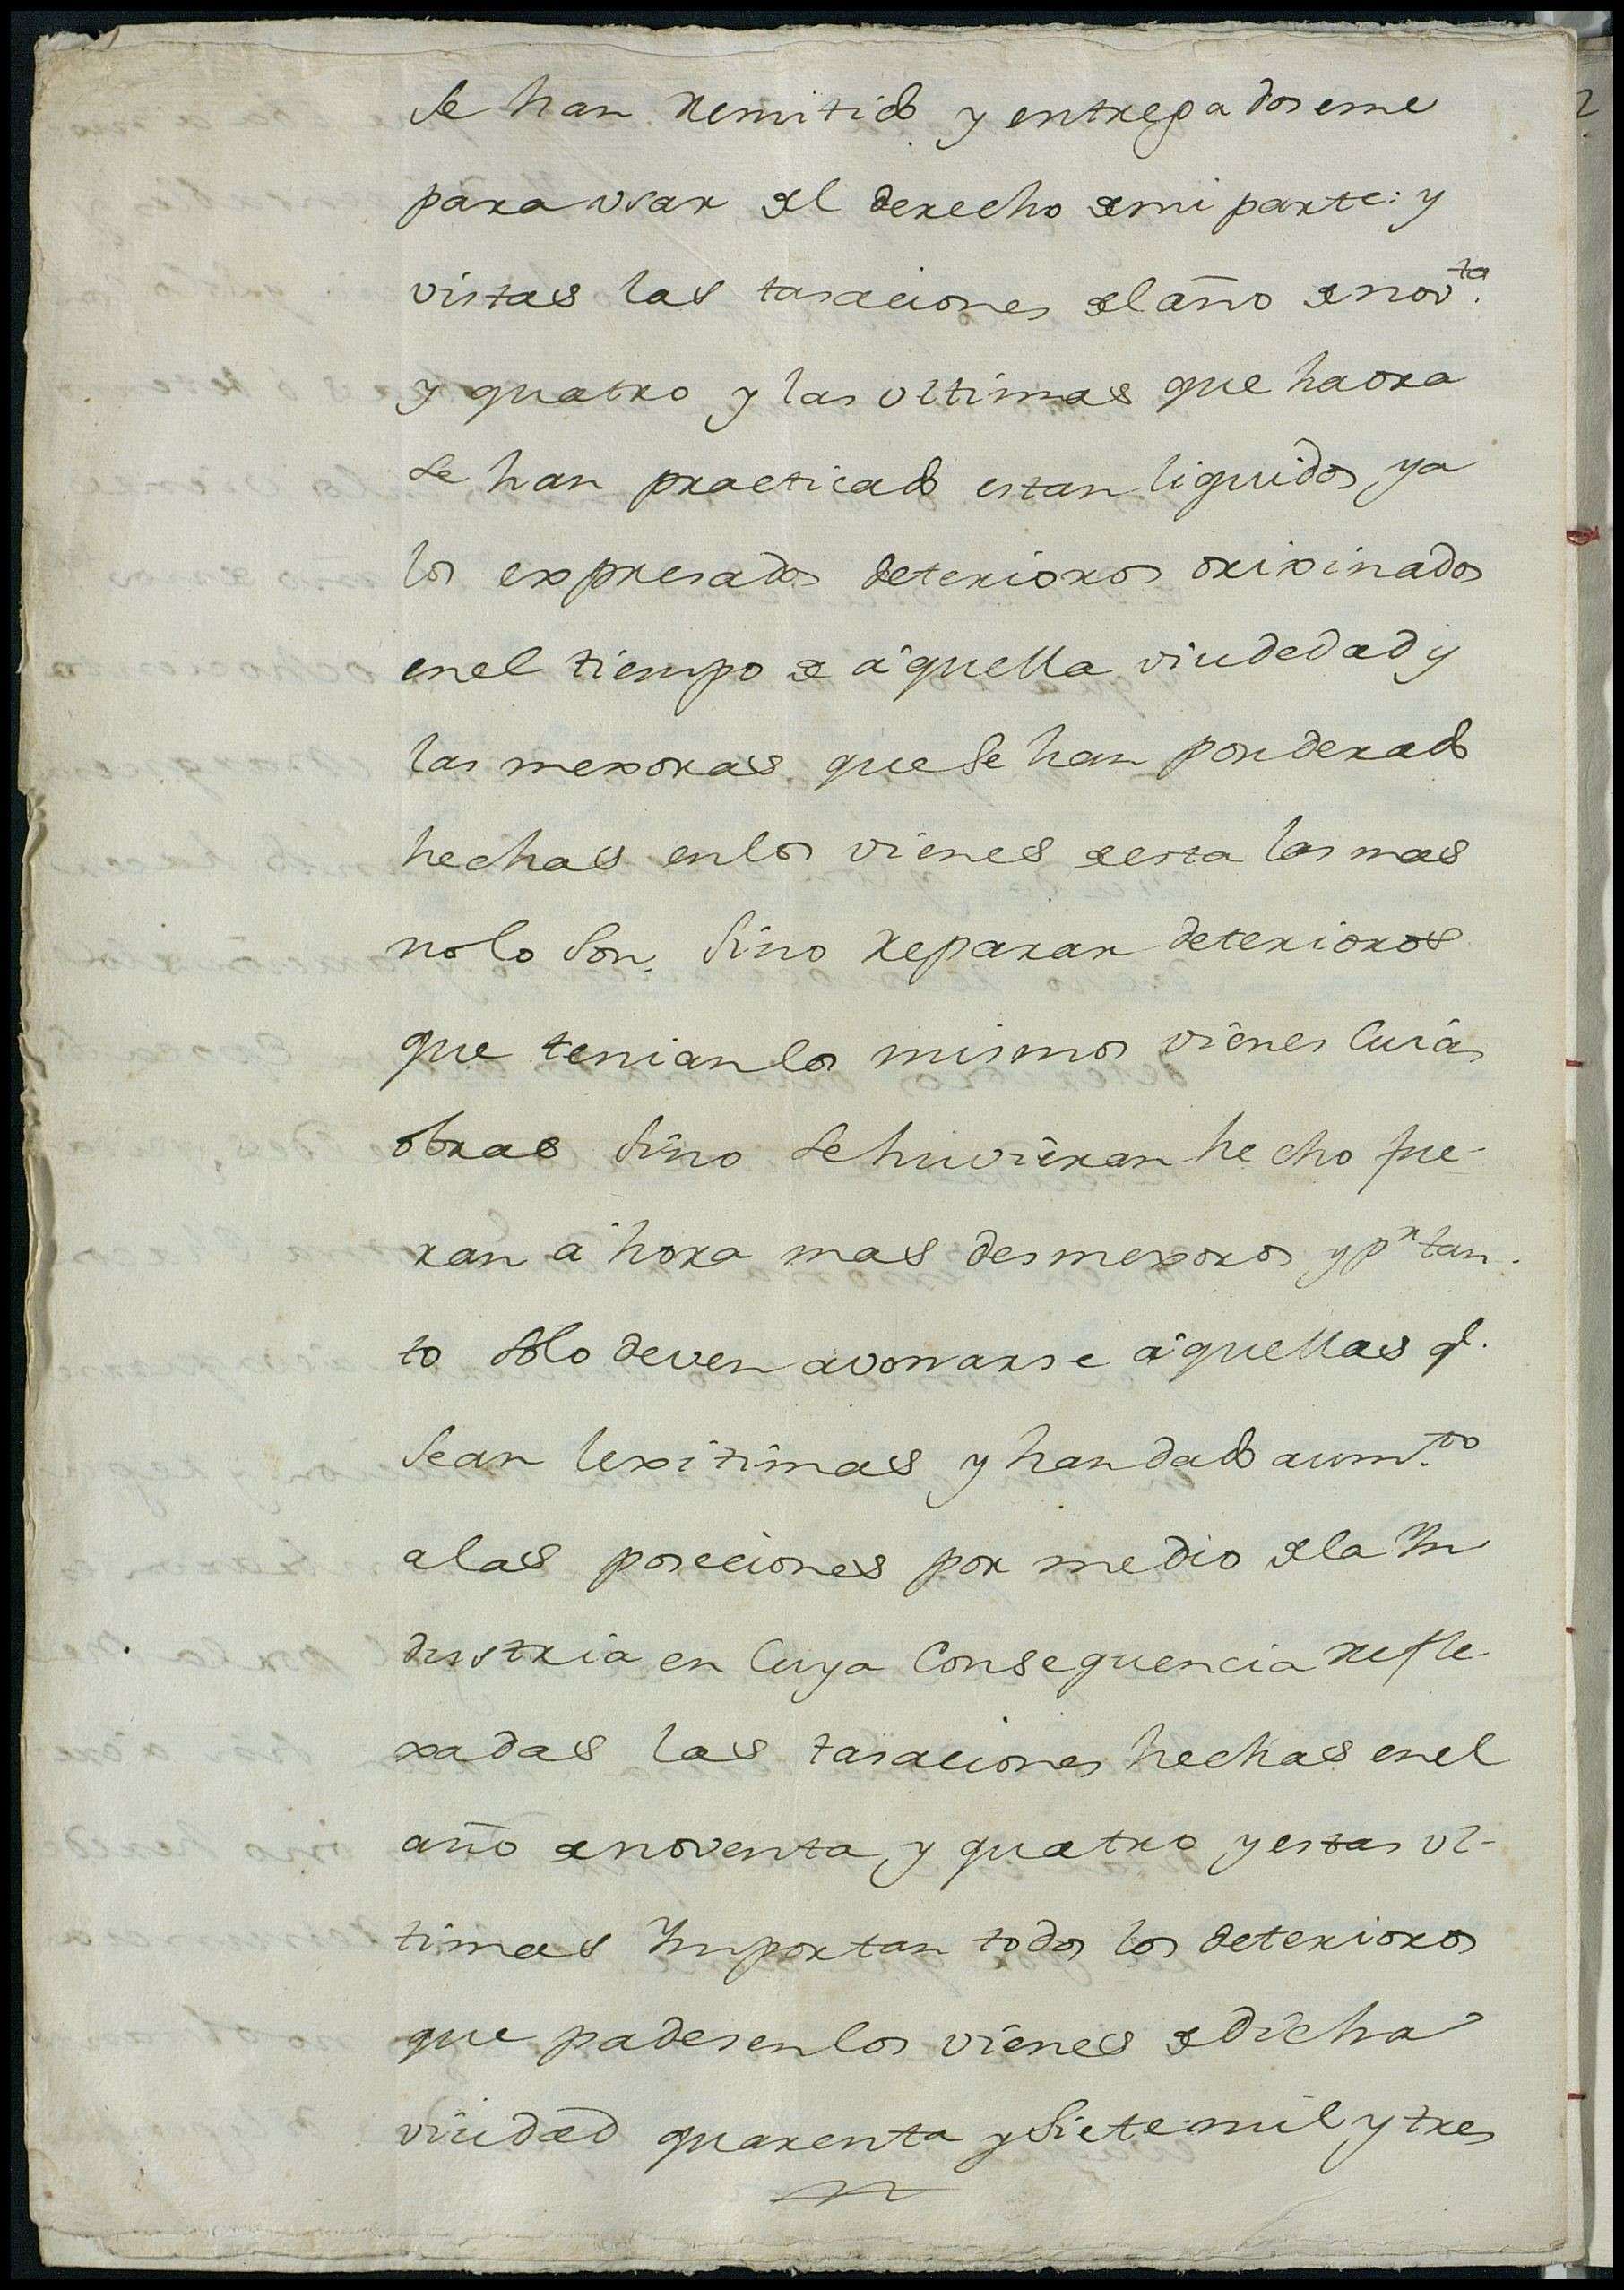 se han remitido y entregadoseme
para usar del derecho de mi parte: y
vistas las tasaciones del año de nov.ta
y quatro y las ultimas que haora
se han practicado estan liquidos ya
los expresados deterioros orixinados
enel tiempo de aquella viudedad y
las mexoras que se han ponderado
hechas enlos vienes de esta las mas
nolo son, sino reparar deterioros
que tenian los mismos vienes cuias
obras sino se huvieran hecho fue-
ran ahora mas desmexoros y pr tan-
to solo deven avonarse aquellas q.
sean lexitimas y han dado aum.to
alas poseciones por medio dela In
dustria en cuya consequencia refle-
xadas las tasaciones hechas enel
año de noventa y quatro y estas ul-
timas Importan todos los deterioros
que padesen los vienes de dicha
viudad quarenta y siete mil y tres